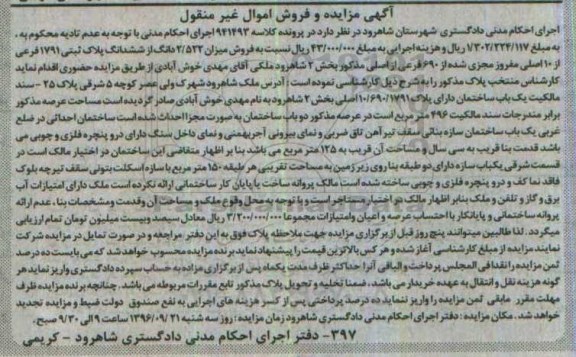 آگهی مزایده و فروش اموال غیر منقول
اجرای احکام مدنی دادگستری شهرستان شاهرود در نظر دارد در پرونده کلاسه ۹۴۱۴۹۳ اجرای احکام مدنی با توجه به عدم تادیه محکوم به ،
به مبلغ ۱/۳۰۲/۲۲۴/۱۱۷ ریال و هزینه اجرایی به مبلغ ۴۳/۰۰۰/۰۰۰ ریال نسبت به فروش میزان ۲/۵۲۲ دانگ از ششدانگ پلاک ثبتی ۱۷۹۱ فرعی
از ۱۰ اصلی مفروز مجزی شده از ۶۹۰ فرعی از اصلی مذکور بخش ۲ شاهرود ملکی آقای مهدی خوش آبادی از طریق مزایده حضوری اقدام نماید
کارشناس منتخب پلاک مذکور را به شرح ذیل کارشناسی نموده است : آدرس ملک شاهرود شهرک ولی عصر کوچه ۵ شرقی پلاک ۲۵ - سند
مالکیت یک باب ساختمان دارای پلاک ۱۰/۶۹۰/۱۷۹۱ اصلی بخش ۲ شاهرود به نام مهدی خوش آبادی صادر گردیده است مساحت عرصه مذکور
برابر مندرجات سند مالکیت ۴۹۶ متر مربع است در عرصه مذکور دو باب ساختمان به صورت مجزا احداث شده است ساختمان احداثی در ضلع
غربی یک باب ساختمان سازه بنائی سقف تیرآهن تاق ضربی و نمای بیرونی آجربهمنی و نمای داخل سنگ دارای درو پنجره فلزی و چوبی می
باشد قدمت بنا قریب به سی سال و مساحت آن قریب به ۱۲۵ متر مربع می باشد بنا بر اظهار متقاضی این ساختمان در اختیار مالک است در
قسمت شرقی یکباب سازه دارای دو طبقه بنا روی زیرزمین به مساحت تقریبی هر طبقه ۱۵۰ متر مربع با سازه اسکلت بتونی سقف تیرچه بلوک
فاقد نما کف و درو پنجره فلزی و چوبی ساخته شده است مالک پروانه ساخت یا پایان کار ساختمانی ارائه نکرده است ملک دارای امتیازات آب
برق و گاز و تلفن و ملک بنابر اظهار مالک در اختیار مستاجر است و با توجه به محل وقوع ملک و مساحت آن وقدمت ومشخصات بنا، عدم ارائه
پروانه ساختمانی و پایانکار با احتساب عرصه و اعیان وامتیازات مجموعا ۳/۲۰۰/۰۰۰/۰۰۰ ریال معادل سیصد وبیست میلیون تومان تمام ارزیابی
میگردد . لذا طالبین میتوانند پنج روز قبل از برگزاری مزایده جهت ملاحظه پلاک فوق به این دفتر مراجعه و در صورت تمایل در مزایده شرکت
نمایند مزایده از مبلغ کارشناسی آغاز شده و هر کس بالاترین قیمت را پیشنهاد نماید برنده مزایده محسوب خواهد شد که می بایست ده درصد
ثمن مزایده را نقدا فی المجلس پرداخت و الباقی آنرا حداکثر ظرف مدت یکماه پس از برگزاری مزاده به حساب سپرده دادگستری واریز نماید هر
گونه هزینه نقل و انتقال به عهده خریدار می باشد . ضمنا تخلیه و تحویل پلاک مذکور تابع مقررات مربوطه می باشد . چنانچه برنده مزایده ظرف
مهلت مقرر مابقی ثمن مزایده را واریز ننماید ده درصد پرداختی پس از کسر هزینه های اجرایی به نفع صندوق دولت ضبط و مزایده تجدید
خواهد شد . مکان مزایده : دفتر اجرای احکام مدنی دادگستری شاهرود زمان مزایده : روز سه شنبه ۱۳۹۶/۰۹/۲۱ ساعت ۹ الی ۹/۳۰ صبح.
۳۹۷- دفتر اجرای احکام مدنی دادگستری شاهرود - کریمی